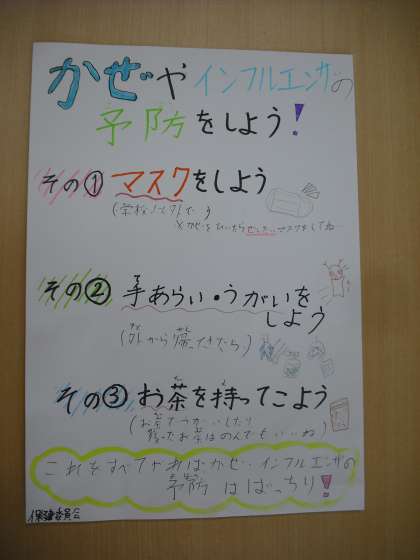 かぜやインフルエンザの
予防をしよう!
その①マスクをしよう
※かぜをひいたらぜったいマスクをしてね
その②手あらい・うがいを
しよう
(外から帰ってきたら)
その③お茶を持ってこよう
(お茶でうがいしたり
残ったお茶はのんでもいいね)
これをすべてやればかぜ・インフルエンザの
予防はばっちり!
保健委員会